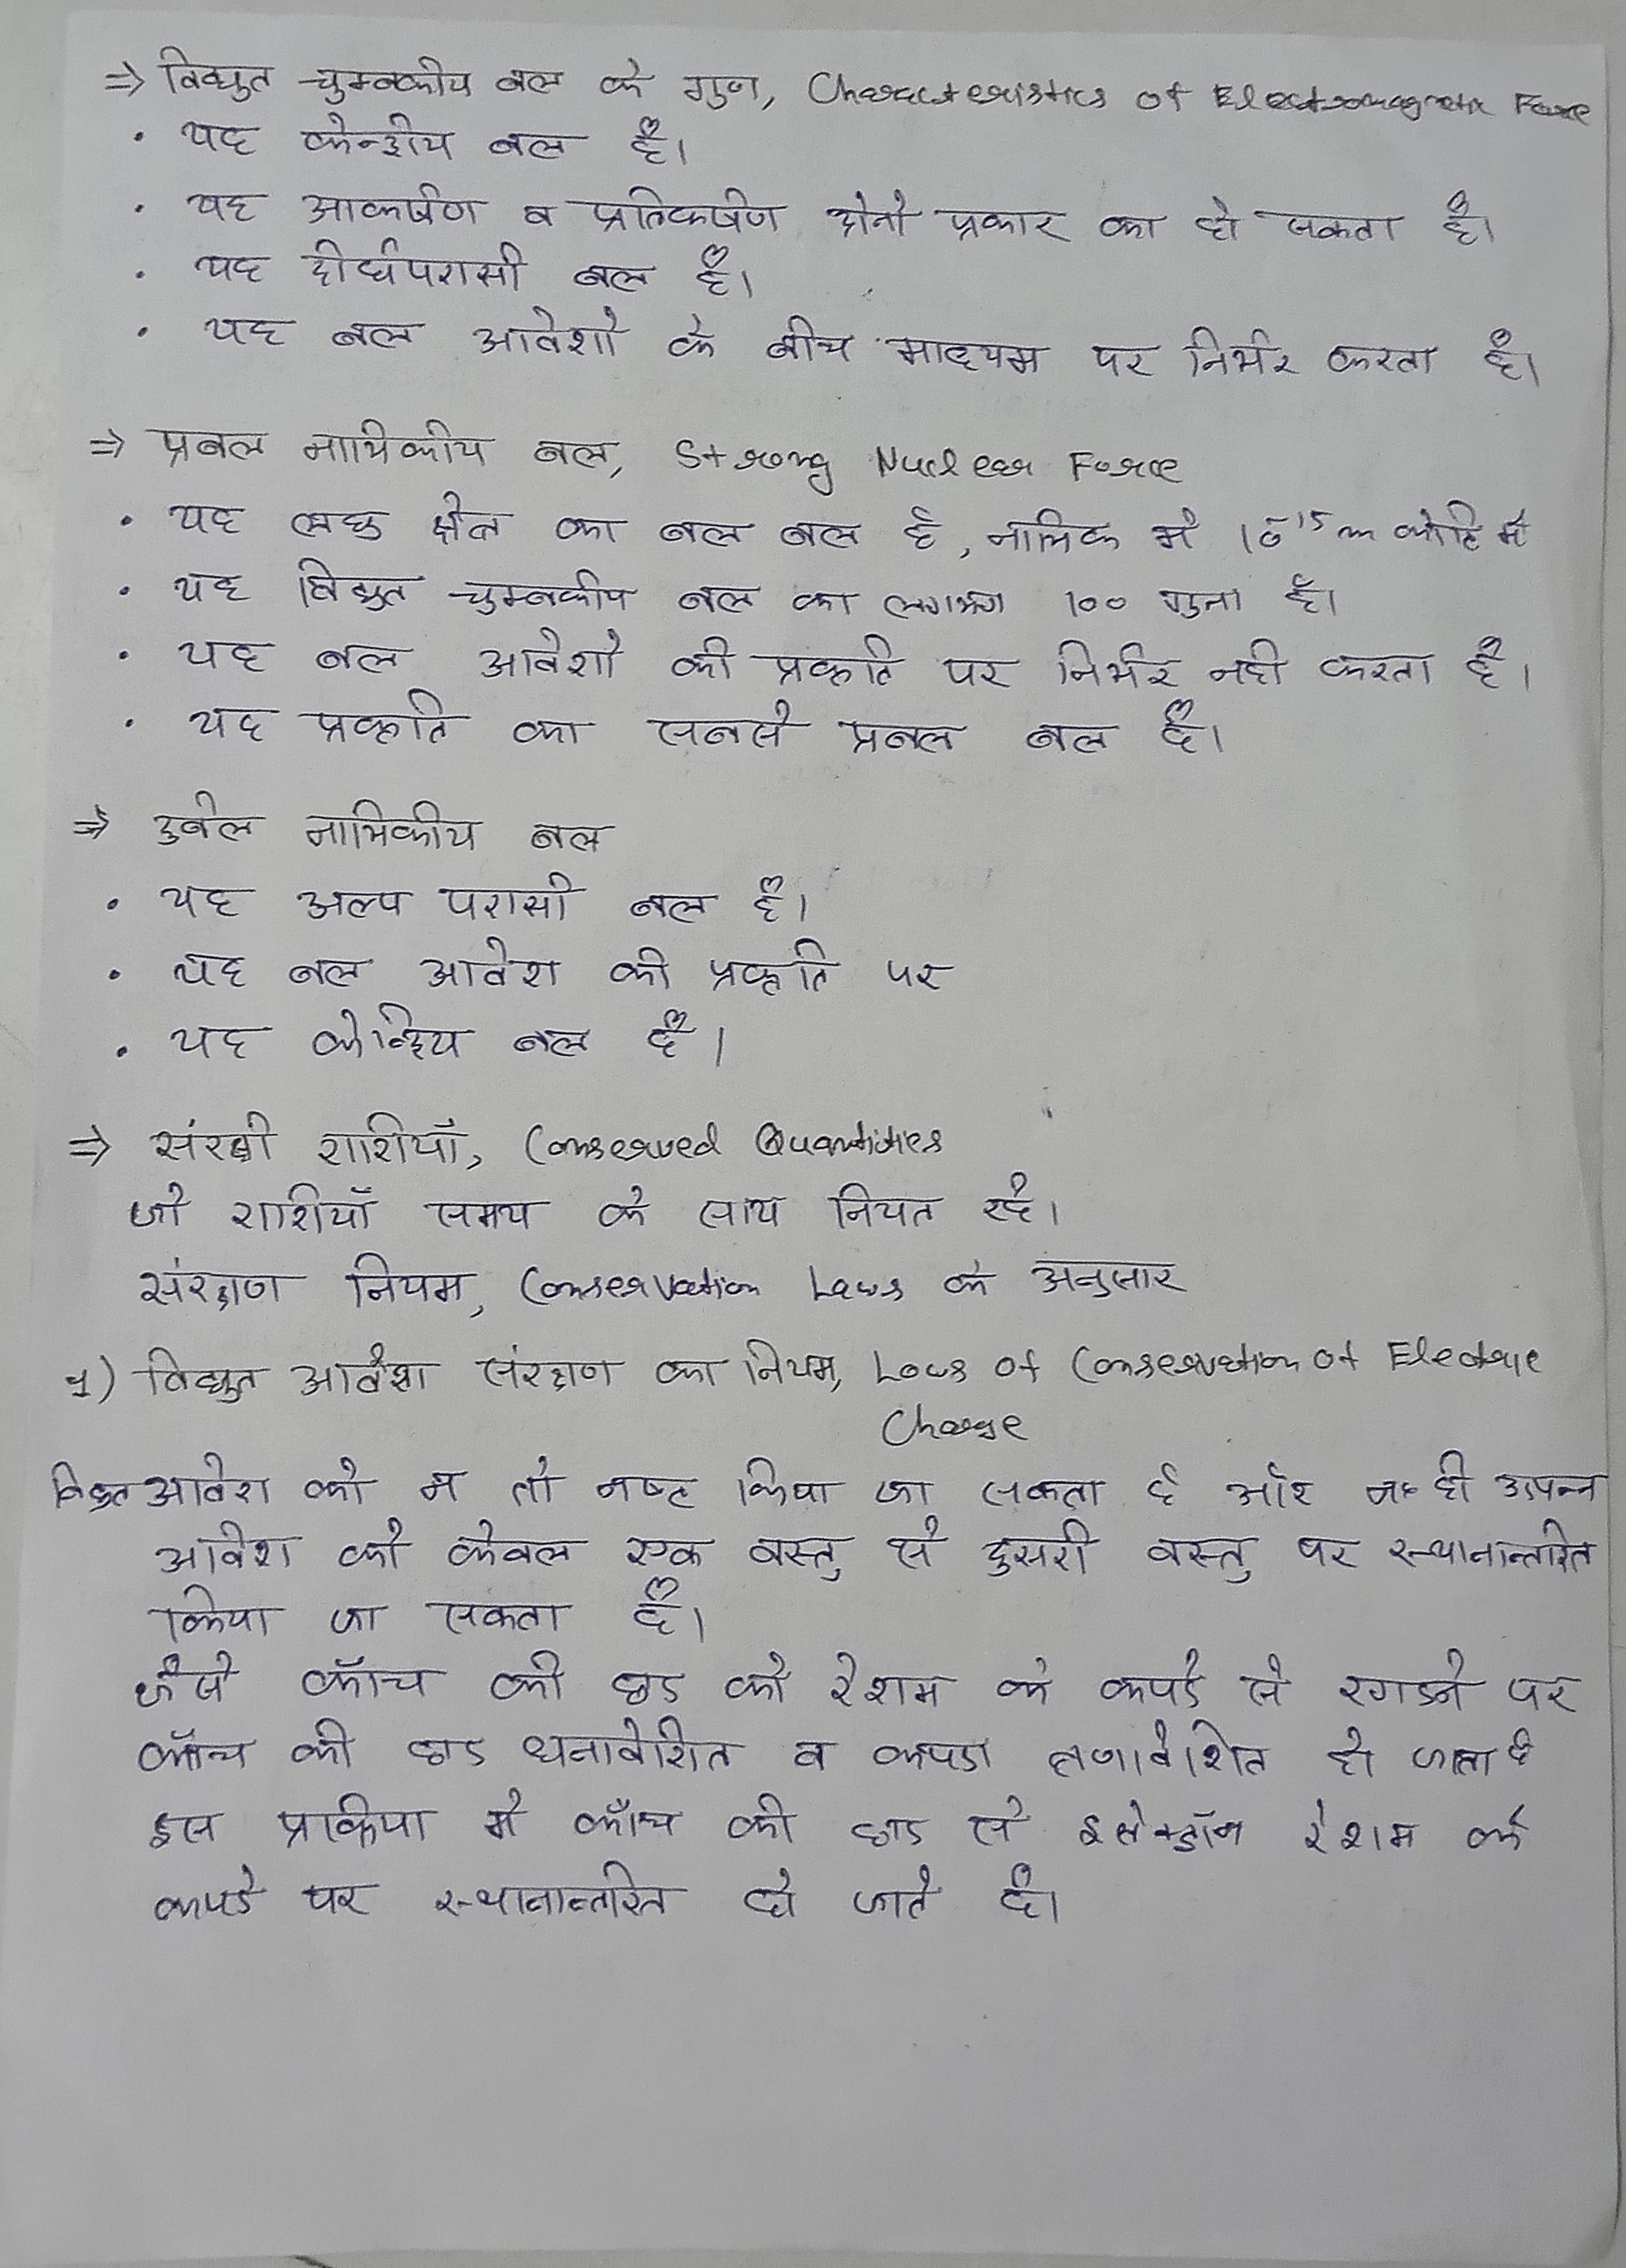 ⇒ विद्युत चुम्बकीय बल के गुण, Characteristics of Electromagnetic Force
• यह केन्द्रीय बल है।
• यह आकर्षण व प्रतिकर्षण दोनो प्रकार का हो सकता है।
• यह दीर्घपरासी बल है।
• यह बल आवेशो के बीच माध्यम पर निर्भर करता है।
⇒ प्रबल नाभिकीय बल, Strong Nuclear Force
• यह लघु क्षेत्र का बल बल है, नाभिक में 10⁻¹⁵ m कोटि में
• यह विद्युत चुम्बकीय बल का लगभग 100 गुना है।
• यह बल आवेशो की प्रकृति पर निर्भर नही करता है।
• यह प्रकृति का सबसे प्रबल बल है।
⇒ दुर्बल नाभिकीय बल
• यह अल्प परासी बल है।
• यह बल आवेश की प्रकृति पर
• यह केन्द्रिय बल है।
⇒ राशियाँ, Conserved Quantities
जो राशियाँ समय के साथ नियत रहे।
संरक्षण नियम, Conservation Laws के अनुसार
1) विद्युत आवेश संरक्षण का नियम, Laws of Conservation of Electric
Charge
विद्युत आवेश को न तो नष्ट किया जा सकता है और न ही उत्पन्न
आवेश को केवल एक वस्तु से दुसरी वस्तु पर स्थानान्तरित
किया जा सकता है।
जैसे कॉच की छड को रेशम के कपडे से रगडने पर
कॉच की छड धनावेशित व कपडा ऋणावेशित हो जाता है
इस प्रक्रिया मे कॉच की छड से इलेक्ट्रॉन रेशम के
कपडे पर स्थानान्तरित हो जाते है।